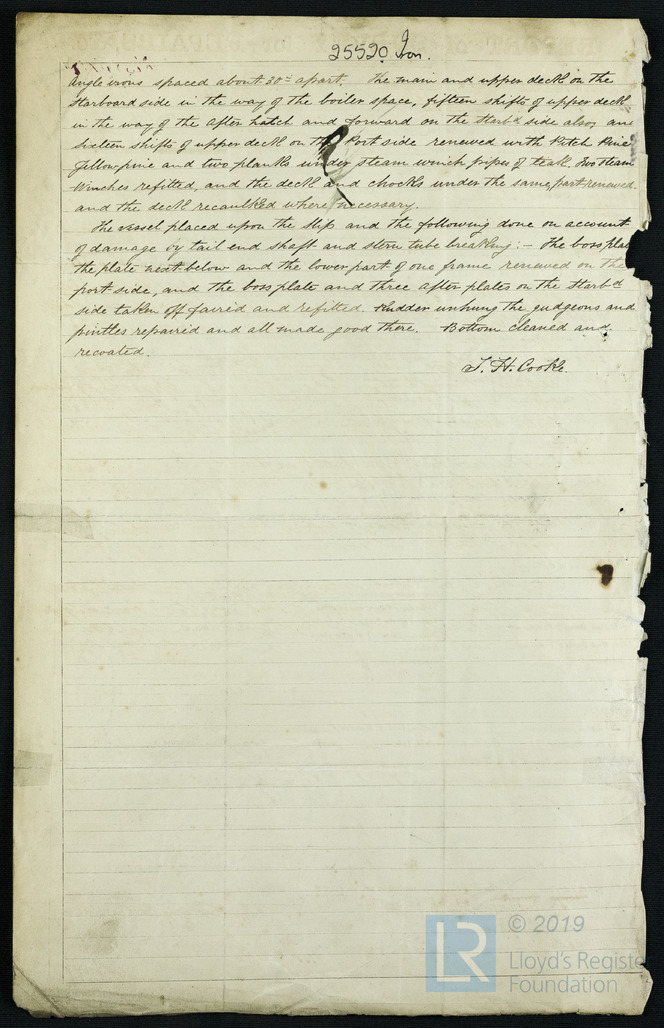 25520 Iron.
Angle irons spaced about 30 ins apart. The main and upper deck on the
starboard side in the way of the boiler space, fifteen shifts of upper deck
in the way of the after hatch and forward on the Starbd side also, an
sixteen shifts of upper deck on the Port side renewed with Pitch Pine
Yellow pine and two planks under steam winch pipes of teak. Two steam
Winches refitted, and the deck and chocks under the same, part renewed.
and the deck recaulked where necessary.
The vessel placed upon the Slip and the following done on account
of damage by tail end shaft and stern tube breaking:— The boss plat
the plate next below and the lower part of one frame renewed on the
port side, and the boss plate and three after plates on the Starbd
side taken off faired and refitted. Rudder unhung the gudgeons and
pintles repaired and all made good there. Bottom cleaned and
recoated.
T. H. Cooke.
© 2019
Lloyd's Register
Foundation
LR